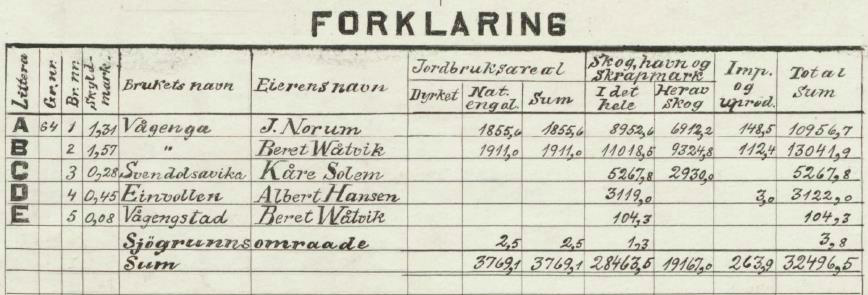 FORKLARING
Littera Gr.nr. Br.nr. Skyld-mark. Brukets navn Eierens navn Jordbruksareal Skog, havn og Skrapmark Imp. og uprod. Total Sum
Dyrket Nat. engal. Sum I det hele Herav skog
A 64 1 1,31 Vågenga J. Norum 1855,6 1855,6 8952,6 6912,2 148,5 10956,7
B 2 1,57 " Beret Wåtvik 1911,0 1911,0 11018,5 9324,8 112,4 13041,9
C 3 0,28 Svendolsavika Kåre Solem 5267,8 2930,0 5267,8
D 4 0,45 Einvollen Albert Hansen 3119,0 3,0 3122,0
E 5 0,08 Vågengstad Beret Wåtvik 104,3 104,3
Sjögrunnsomraade 2,5 2,5 1,3 3,8
Sum 3769,1 3769,1 28463,5 19167,0 263,9 32496,5